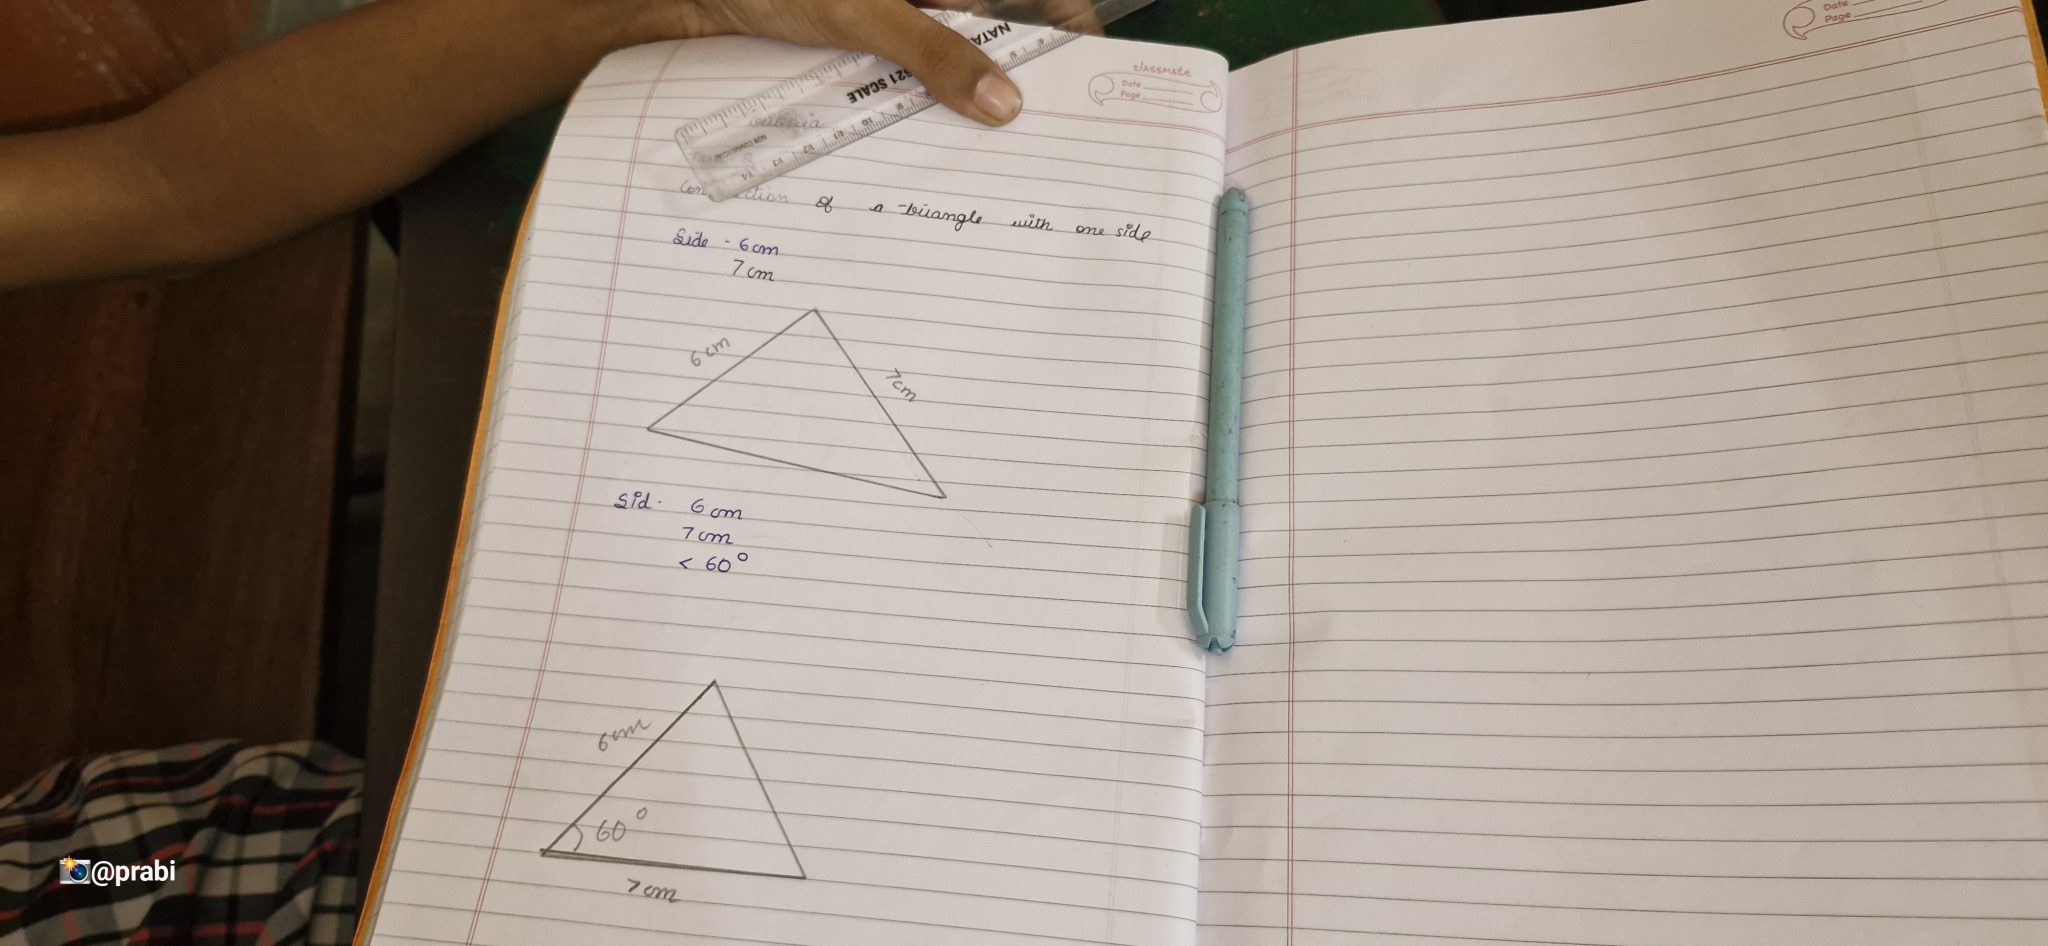 NATA
621 SCALE
classmate
Date
Page
Date
Page
of a triangle with one side
Side - 6 cm
7 cm
6 cm
7 cm
Sid - 6 cm
7 cm
< 60°
6 cm
60°
7 cm
@prabi